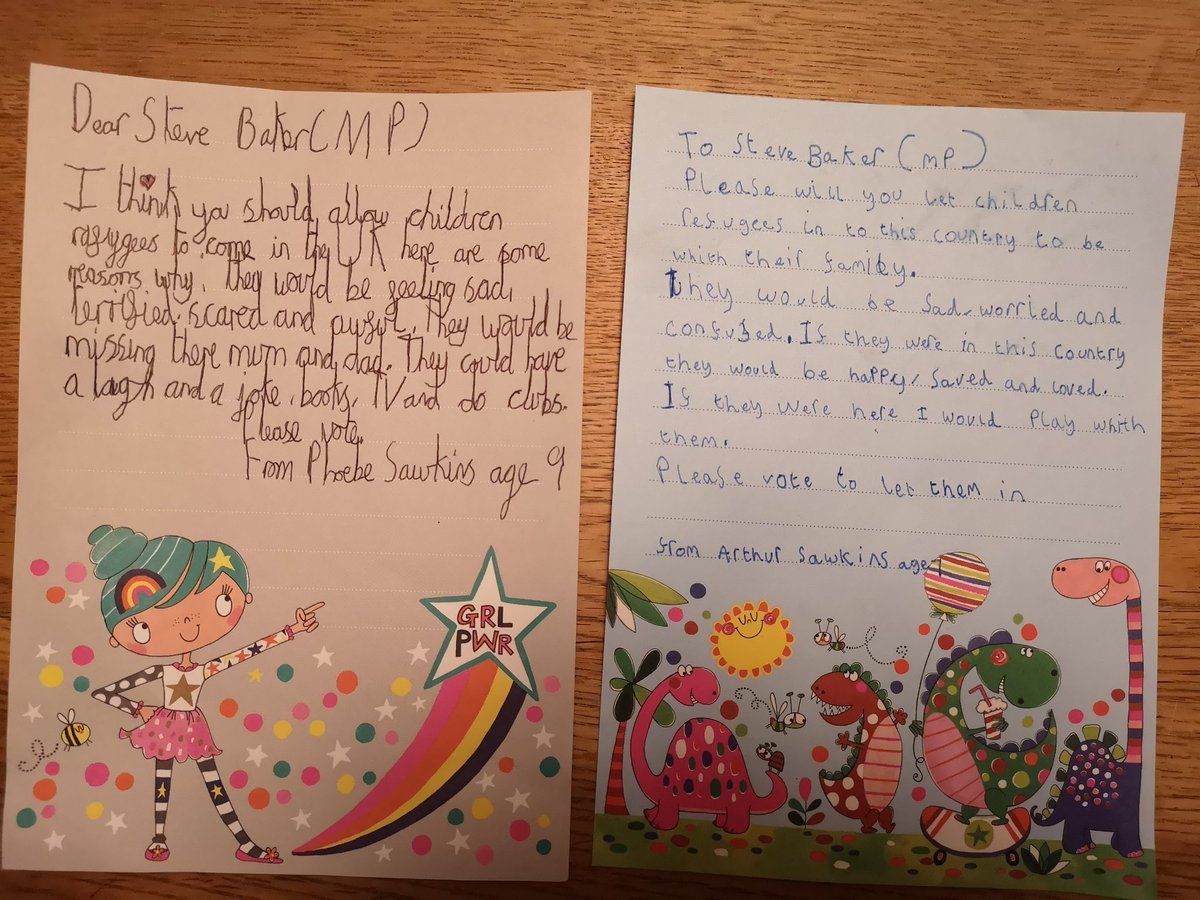 Dear Steve Baker (MP)
I think you should allow children
rafygees to come in the UK here are some
reasons why. they would be feeling sad,
terrified, scared and awful. They would be
missing there mum and dad. They could have
a laugh and a joke, books, TV and do clubs.
Please vote.
From Phoebe Sawkins age 9
GRL
PWR
To Steve Baker (MP)
Please will you let children
refugees in to this country to be
which their family.
they would be sad, worried and
confused. If they were in this country
they would be happy, saved and loved.
If they were here I would play whith
them.
Please vote to let them in
from Arthur Sawkins age